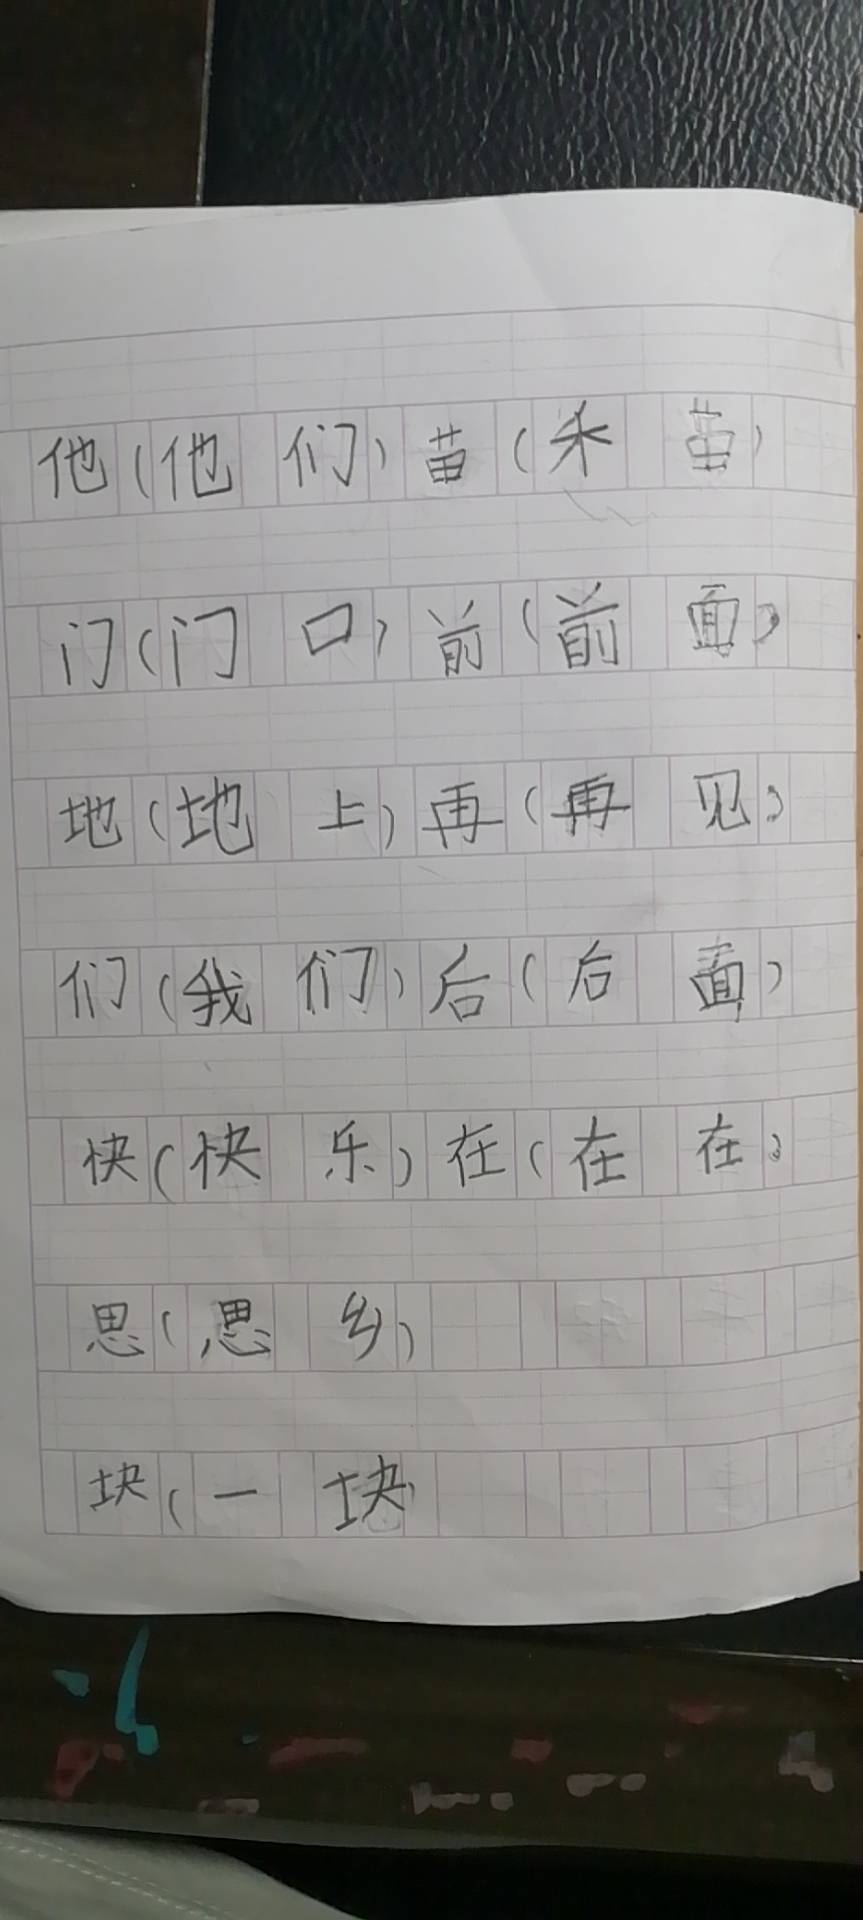 他(他们)苗(禾苗)
门(门口)前(前面)
地(地上)再(再见)
们(我们)后(后面)
快(快乐)在(在在)
思(思乡)
块(一块